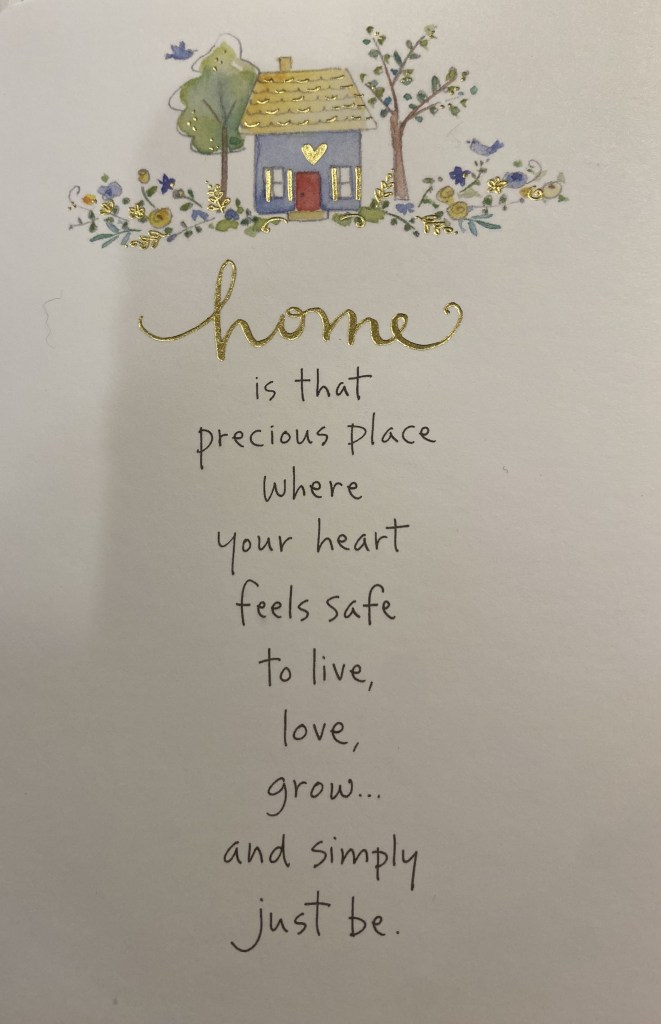 home
is that
precious place
where
your heart
feels safe
to live,
love,
grow...
and simply
just be.